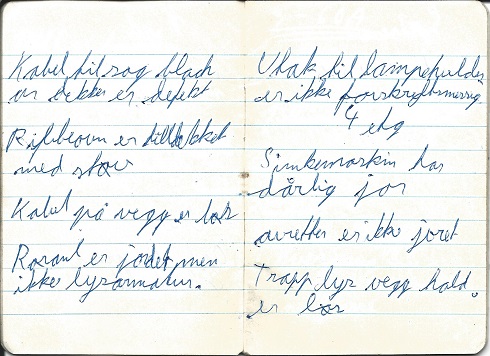 Kabel til sag blach
av dekke er defekt
Ribbeovn er tilldekket
med støv
Kabel på vegg er løs
er jordet men
ikke lysarmatur.
til lampeholder
er ikke forskriftsmessig
4 etg
har
dårlig jor
er ikke joret
Trapp lys vegg hold.
er løs